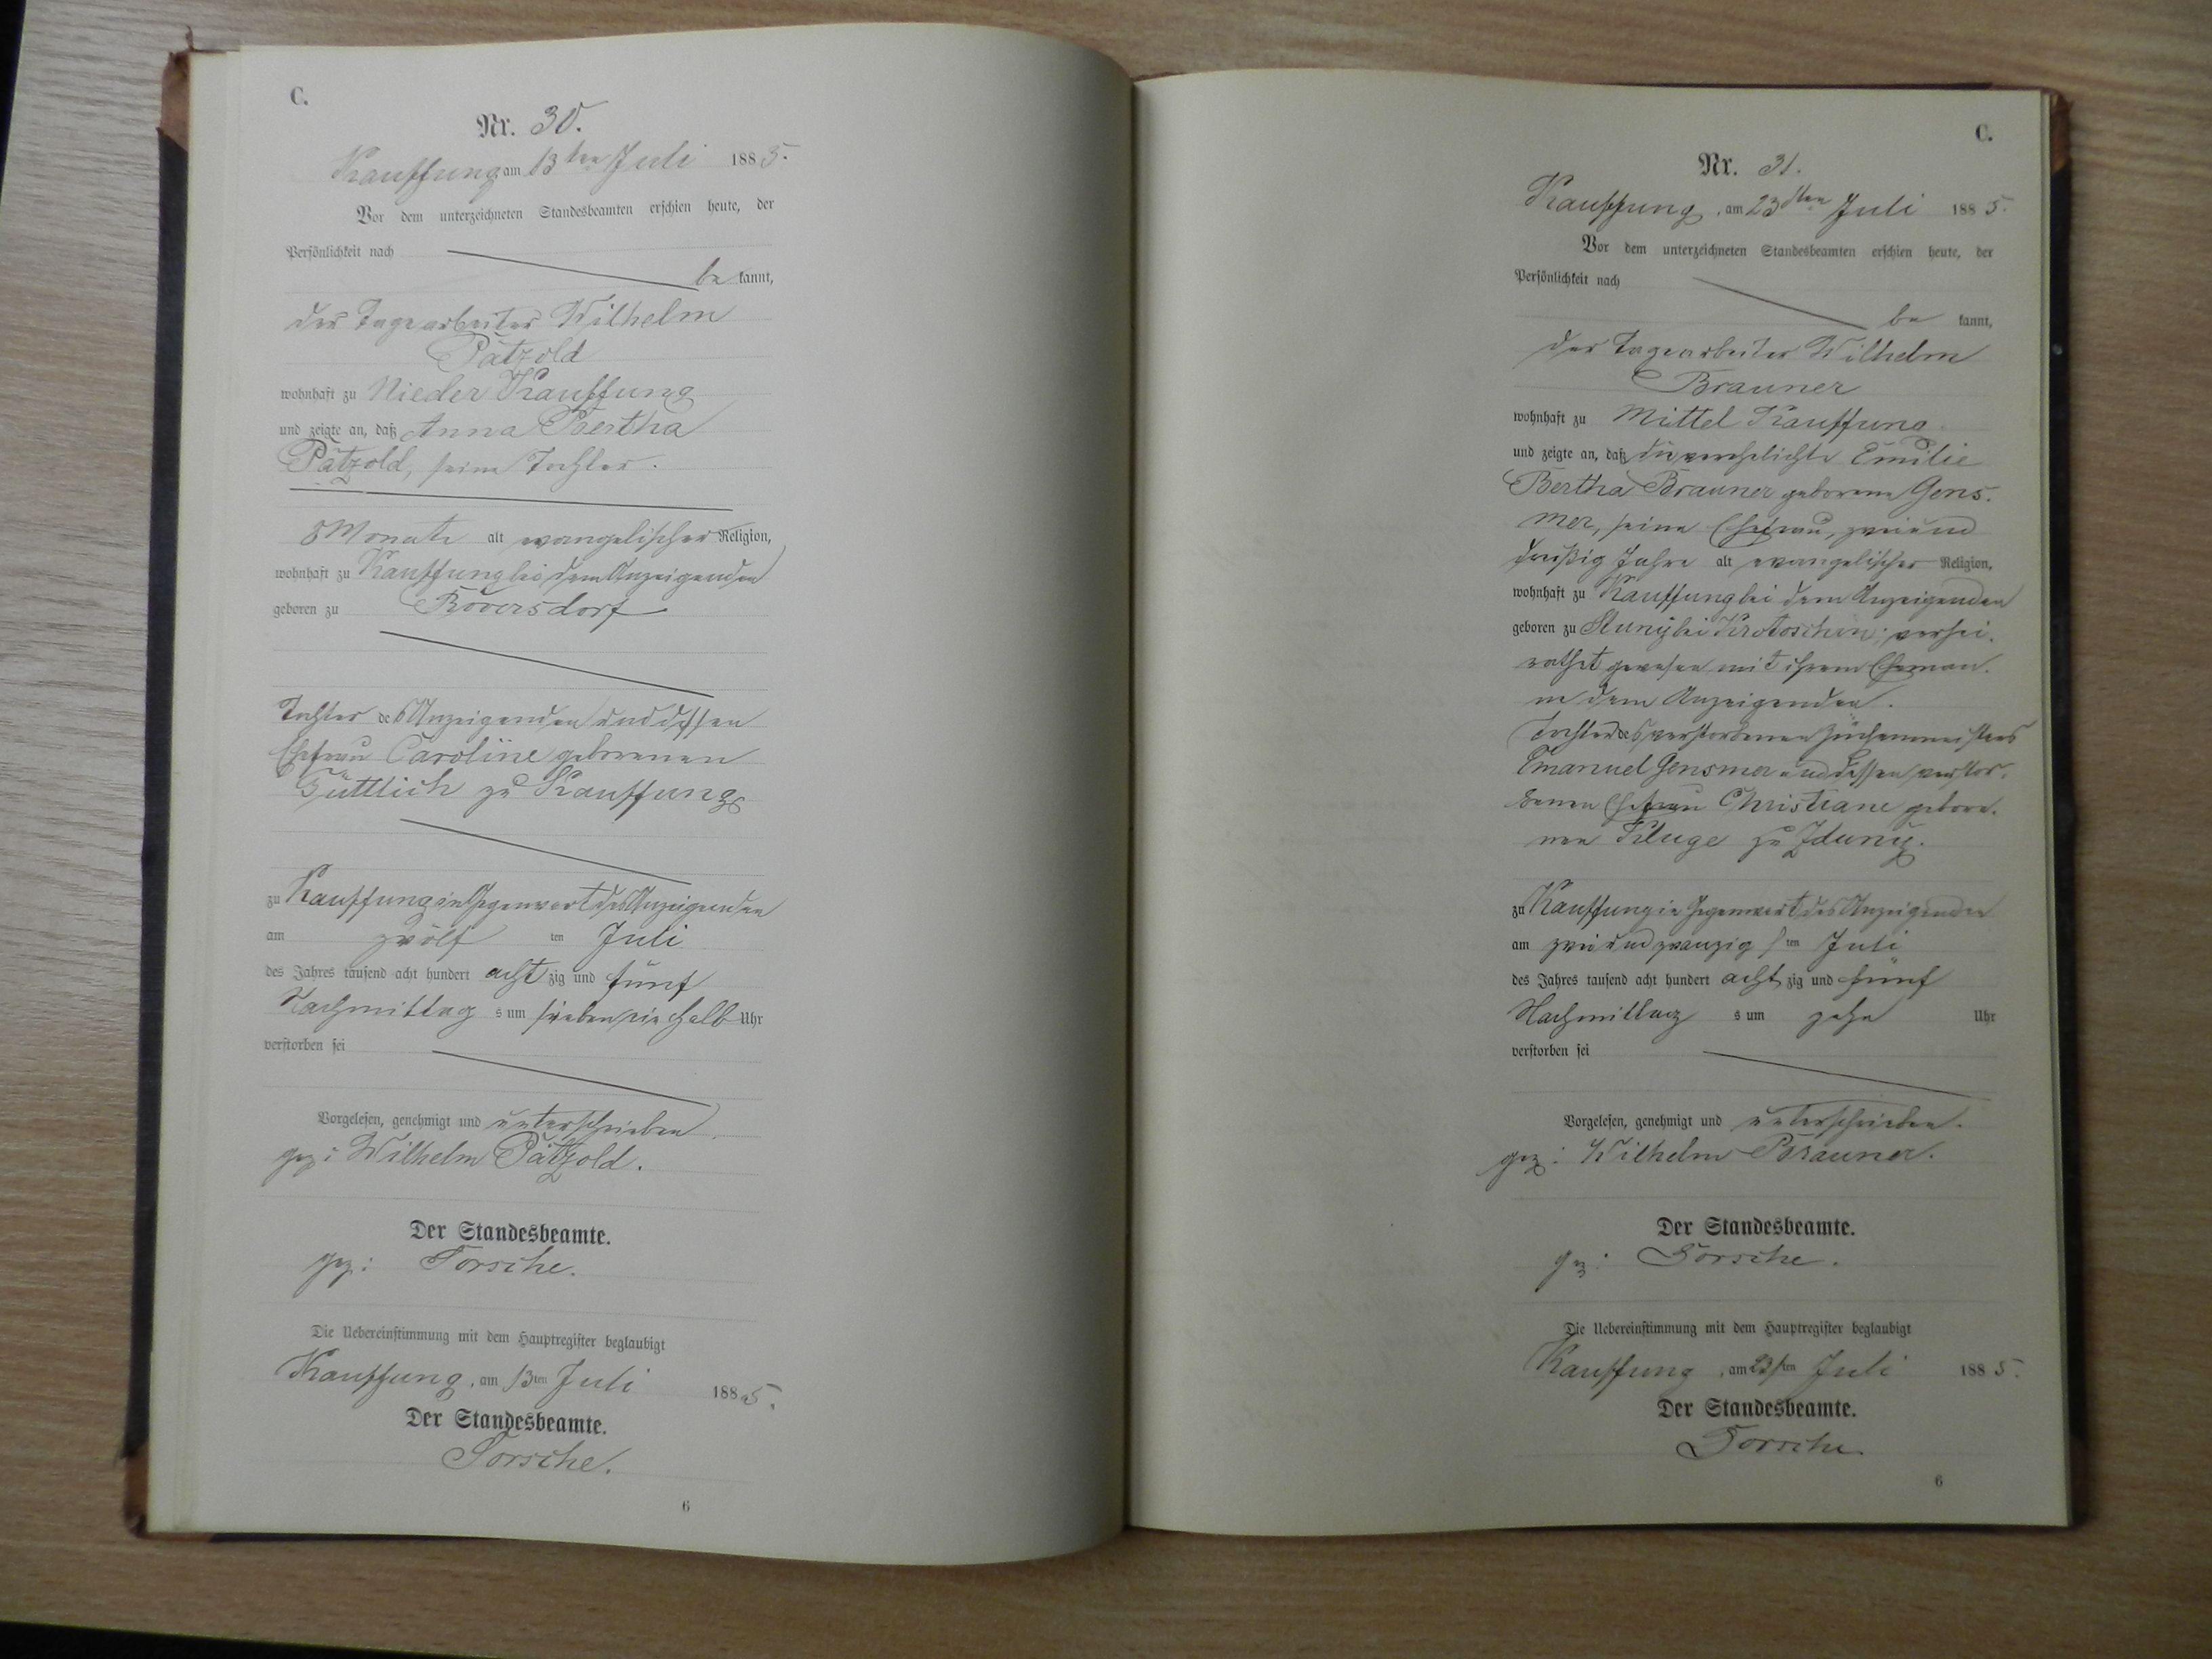 C.
Nr. 30.
Kauffung am 13ten Juli 1885.
Vor dem unterzeichneten Standesbeamten erschien heute, der
Persönlichkeit nach
be kannt,
der Tagearbeiter Wilhelm
Pätzold
wohnhaft zu Nieder Kauffung
und zeigte an, daß Anna Bertha
Pätzold, seine Tochter.
8 Monate alt evangelischer Religion,
wohnhaft zu Kauffung bei dem Anzeigenden
geboren zu Röversdorf
Tochter des Anzeigenden und dessen
Ehefrau Caroline geborenen
Güttlich zu Kauffung
zu Kauffung in Gegenwart des Anzeigenden
am zwölf ten Juli
des Jahres tausend acht hundert acht zig und fünf
Nachmittag s um sieben ein halb Uhr
verstorben sei
Vorgelesen, genehmigt und unterschrieben.
gez: Wilhelm Pätzold.
Der Standesbeamte.
gez: Torsche.
Die Uebereinstimmung mit dem Hauptregister beglaubigt
Kauffung, am 13ten Juli 1885.
Der Standesbeamte.
Torsche.
6
C.
Nr. 31.
Kauffung, am 23sten Juli 1885.
Vor dem unterzeichneten Standesbeamten erschien heute, der
Persönlichkeit nach
be kannt,
der Tagearbeiter Wilhelm
Brauner
wohnhaft zu Mittel Kauffung
und zeigte an, daß die verehelichte Emilie
Bertha Brauner geborene Gens-
mer, seine Ehefrau, zweiund
dreißig Jahre alt evangelischer Religion,
wohnhaft zu Kauffung bei dem Anzeigenden
geboren zu bei Krotoschin; verhei-
rathet gewesen mit ihrem Eheman-
ne dem Anzeigenden.
Tochter des verstorbenen Züchenmeisters
Emanuel Gensmer und dessen verstor-
benen Ehefrau Christiane gebore-
nen Kluge zu Zduny.
zu Kauffung in Gegenwart des Anzeigenden
am zwei und zwanzig sten Juli
des Jahres tausend acht hundert acht zig und fünf
Nachmittag s um zehn Uhr
verstorben sei
Vorgelesen, genehmigt und unterschrieben.
gez: Wilhelm Brauner.
Der Standesbeamte.
gez: Torsche.
Die Uebereinstimmung mit dem Hauptregister beglaubigt
Kauffung, am 23sten Juli 1885.
Der Standesbeamte.
Torsche.
6